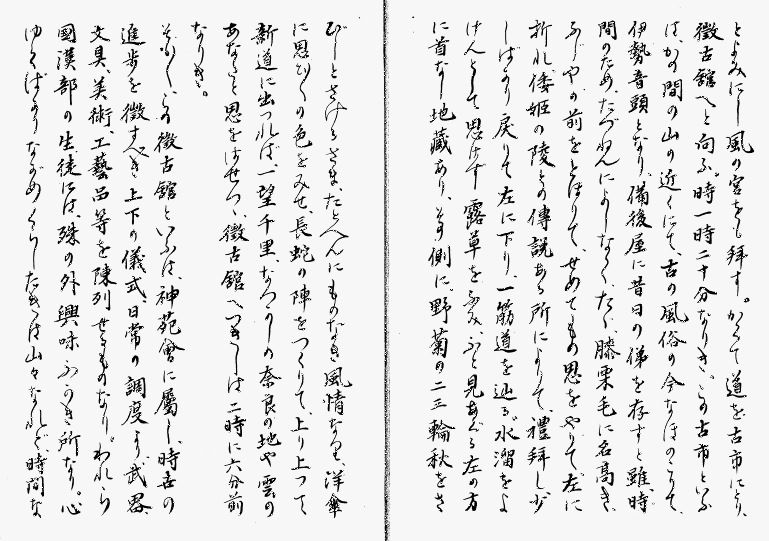 とよみにし風の宮をも拝す。かくて道を古市にとり、
徴古館へと向ふ。時一時二十分なりき、この古市といふ
は、かの間の山の近くにて、古の風俗の今なほのこりて、
伊勢音頭となり、備後屋に昔日の俤を存すと雖、時
間のため、たづねんによしなく、たゞ膝栗毛に名高き、
ふぢやの前をとほりて、せめてもの思をやりて、左に
折れ、倭姫の陵との傳説ある所によりて、禮拜し、少
しばかり戻りて左に下り、一筋道を辿る。水溜をよ
けんとして思はず露草をふみ、ふと見あぐる左の方
に首なし地藏あり、その側に、野菊の二三輪秋をさ
びしとさける さま、たとへんにものなき風情なり。洋傘
に思ひ〱の色をみせ、長蛇の陣をつくりて、上り上つて
新道に出つれば、一望千里、なつかしの奈良の地や雲の
あなたと思をはせつゝ、徴古館へつきしは二時に六分前
なりき。
そも〱、この徴古館といふは、神苑會に屬し、時世の
進歩を徴すべき上下の儀式、日常の調度より、武器、
文具、美術、工藝品等を陳列せるものなり。われら
國漢部の生徒には、殊の外興味ふかき所なり。心
ゆくばかりながめくらしたきは山々なれど、時間な